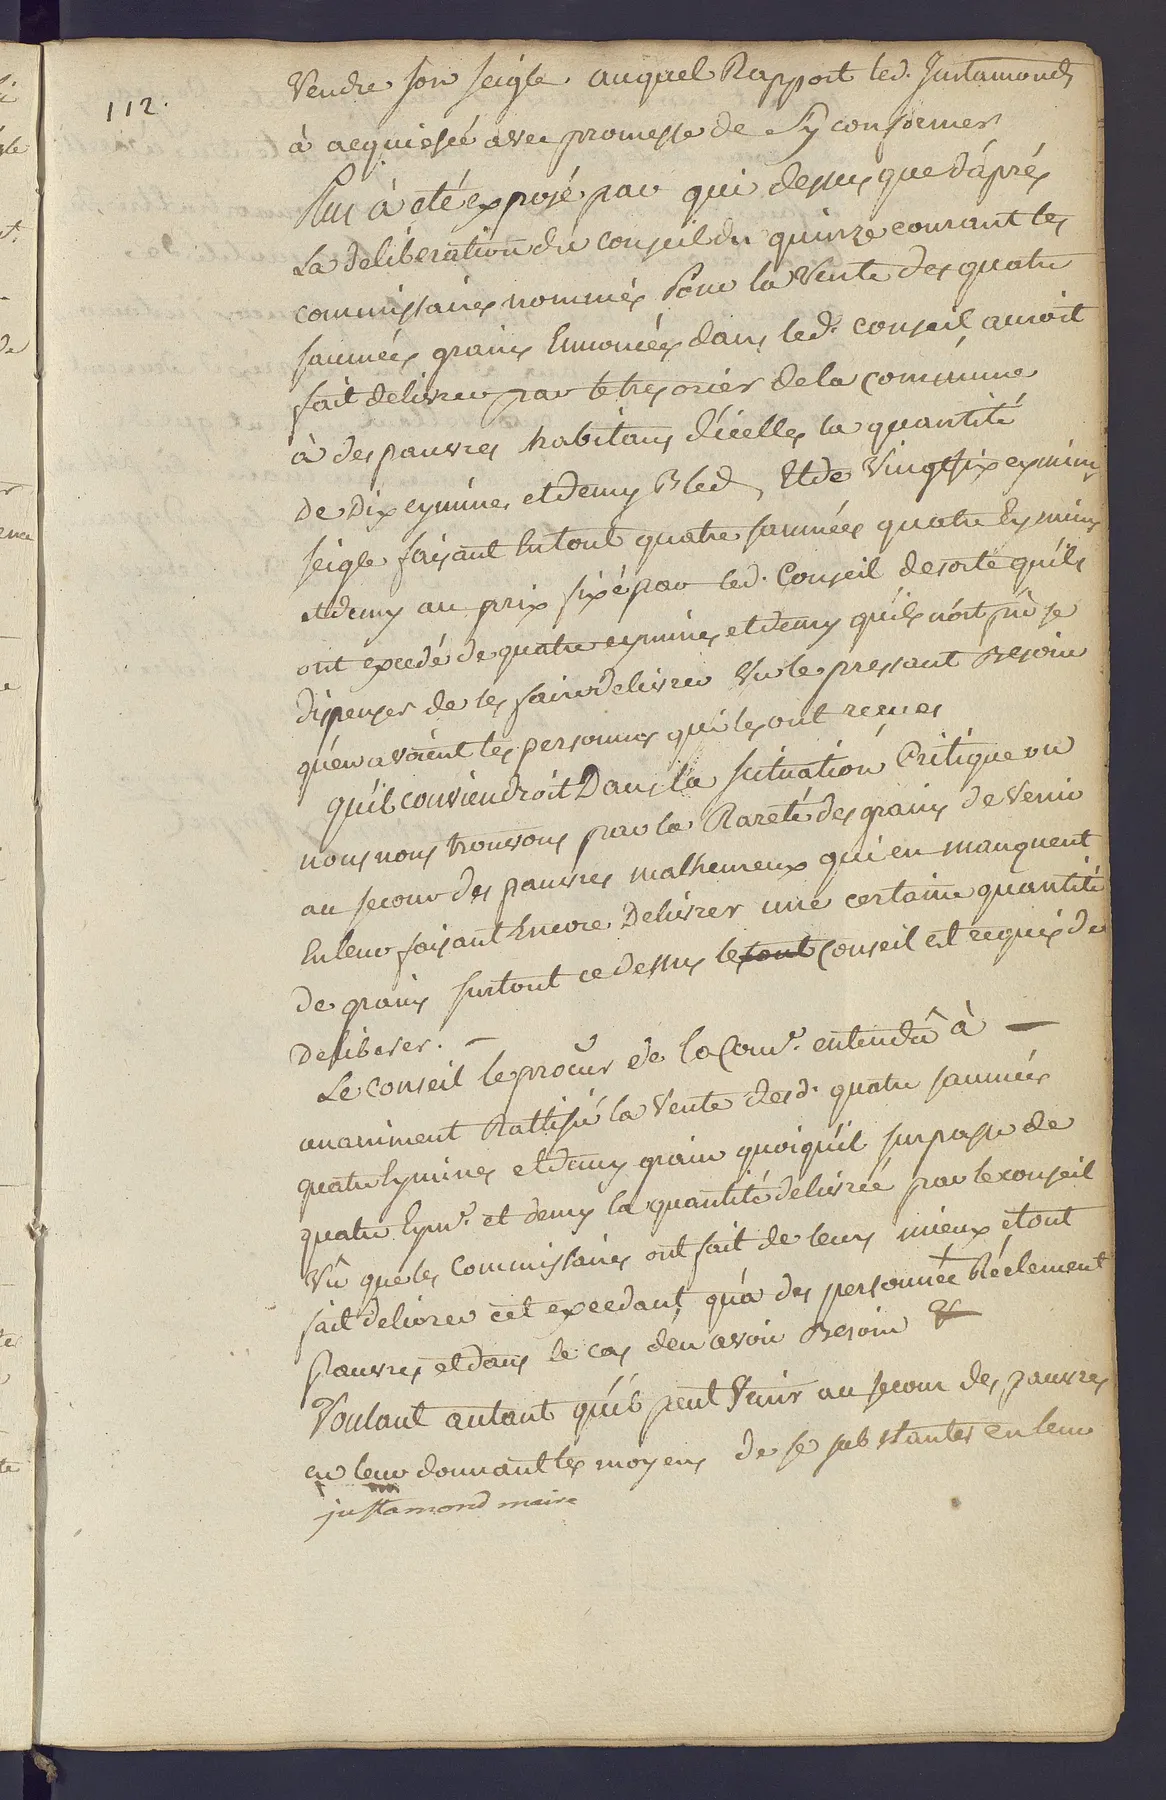 112.
Vendre son seigle auquel Rapport led. Justamond
à acquiessé avec promesse de s'y conformer
Plus à eté exposé par qui dessus que d'áprés
La deliberation du conseil du quinze courant les
commissaires nommés Pour la Vente des quatre
saumées grains Ennoncées dans led. conseil auroit
fait delivrer par le tresorier de la commune
à des pauvres habitans d'icelles la quantité
de Dix eymines et demy Bled, Et de Vingtsix eymines
seigle faisant En tout quatre saumées quatre Eymines
et demy au prix fixé par led. Conseil desorte qu'ils
ont excedé de quatre eymines et demy qu'ils n'ont pû se
dispenser de les faire delivrer Vu le pressant Besoin
qu'en avoient les personnes qui les ont reçues
qu'il conviendroit Dans la situation Critique ou
nous nous trouvons par la Rareté des grains de Venir
au secour des pauvres malheureux qui en manquent
En leur faisant Encore Delivrer une certaine quantité
de grains surtout ce dessus le conseil est requis de
Deliberer. —
Le conseil le procur de la Com.e entendû à —
unaniment Rattifié la Vente desd. quatre saumées
quatre Eymines et demy grain quoiqu'il surpasse de
quatre Eym.s et demy la quantité delivrée par le conseil
Vû que les Commissaires ont fait de leurs mieux et ont
fait delivrer cet excedant qu'a des personnée Réelement
pauvres et dans le cas d'en avoir Besoin &
Voulant autant qu'il peut Venir au secour des pauvres
en leur donnant les moyens de se substanter en leur
justamond maire